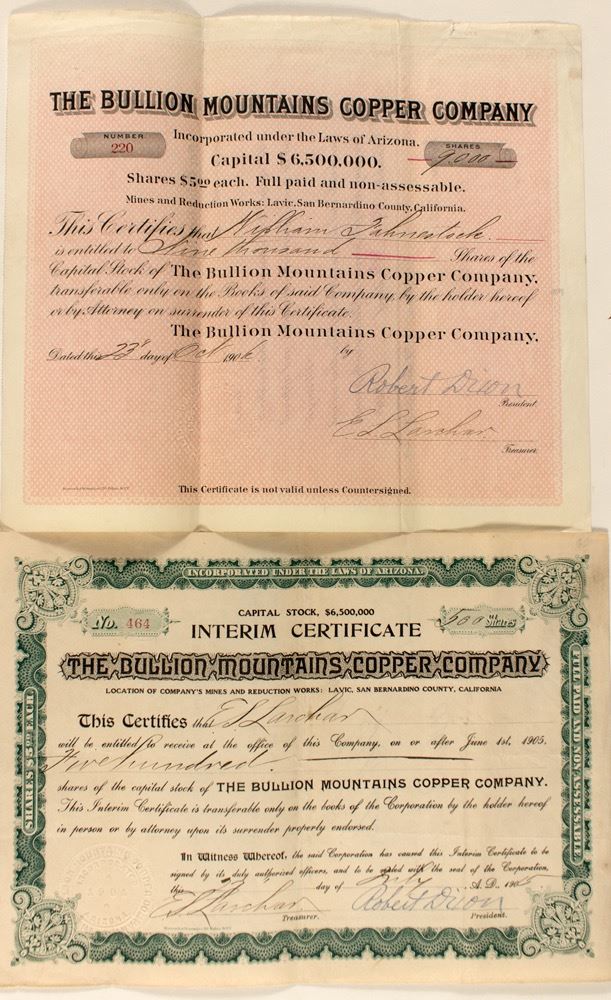 THE BULLION MOUNTAINS COPPER COMPANY
NUMBER
220
Incorporated under the Laws of Arizona.
SHARES
9,000
Capital $6,500,000.
Shares $5.00 each. Full paid and non-assessable.
Mines and Reduction Works: Lavic, San Bernardino County, California.
This Certifies that William Fahnestock
is entitled to Nine thousand Shares of the
Capital Stock of The Bullion Mountains Copper Company,
transferable only on the Books of said Company, by the holder hereof
or by Attorney on surrender of this Certificate.
The Bullion Mountains Copper Company,
Dated this 23d day of Oct 1906 by
Robert Dixon
President.
E S Larchar
Treasurer.
This Certificate is not valid unless Countersigned.
INCORPORATED UNDER THE LAWS OF ARIZONA.
CAPITAL STOCK, $6,500,000
No. 464
500 SHARES
INTERIM CERTIFICATE
THE BULLION MOUNTAINS COPPER COMPANY
LOCATION OF COMPANY'S MINES AND REDUCTION WORKS: LAVIC, SAN BERNARDINO COUNTY, CALIFORNIA
This Certifies that E S Larchar
will be entitled to receive at the office of this Company, on or after June 1st, 1905,
Five hundred
shares of the capital stock of THE BULLION MOUNTAINS COPPER COMPANY.
This Interim Certificate is transferable only on the books of the Corporation by the holder hereof
in person or by attorney upon its surrender properly endorsed.
In Witness Whereof, the said Corporation has caused this Interim Certificate to be
signed by its duly authorized officers, and to be sealed with the seal of the Corporation,
this day of A. D. 190
E S Larchar Robert Dixon
Treasurer. President.
SHARES $5.00 EACH
FULL PAID AND NON-ASSESSABLE.